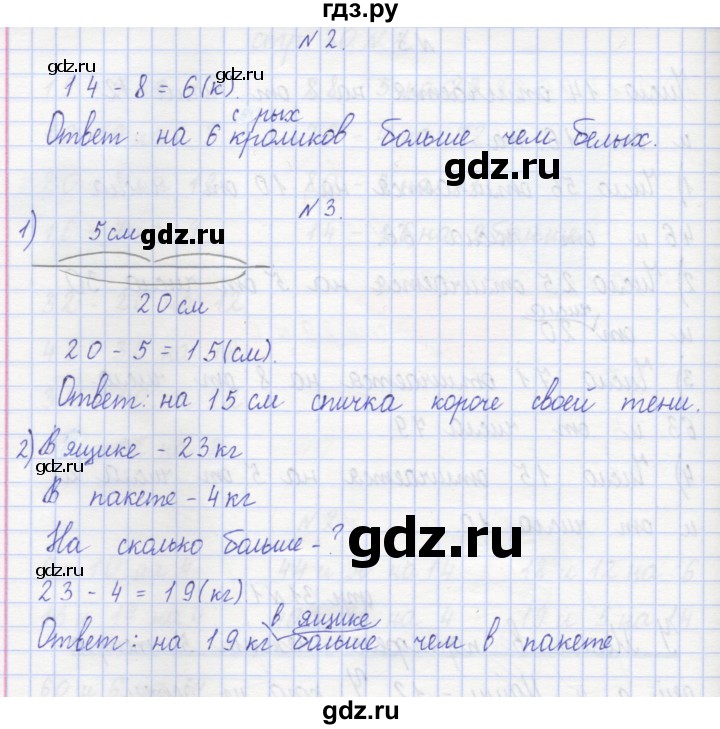 гдз.ру
N 2.
gdz.ru gdz.ru
14 - 8 = 6 (к).
с рых
Ответ: на 6 кроликов больше чем белых.
gdz.ru gdz.ru
N 3.
1) 5 см gdz.ru
20 см
gdz.ru
20 - 5 = 15 (см).
Ответ: на 15 см спичка короче своей тени.
gdz.ru
2) В ящике - 23 кг
В пакете - 4 кг
gdz.ru
На сколько больше - ?
gdz.ru
23 - 4 = 19 (кг)
в ящике
Ответ: на 19 кг больше чем в пакете.
gdz.ru gdz.ru
gdz.ru